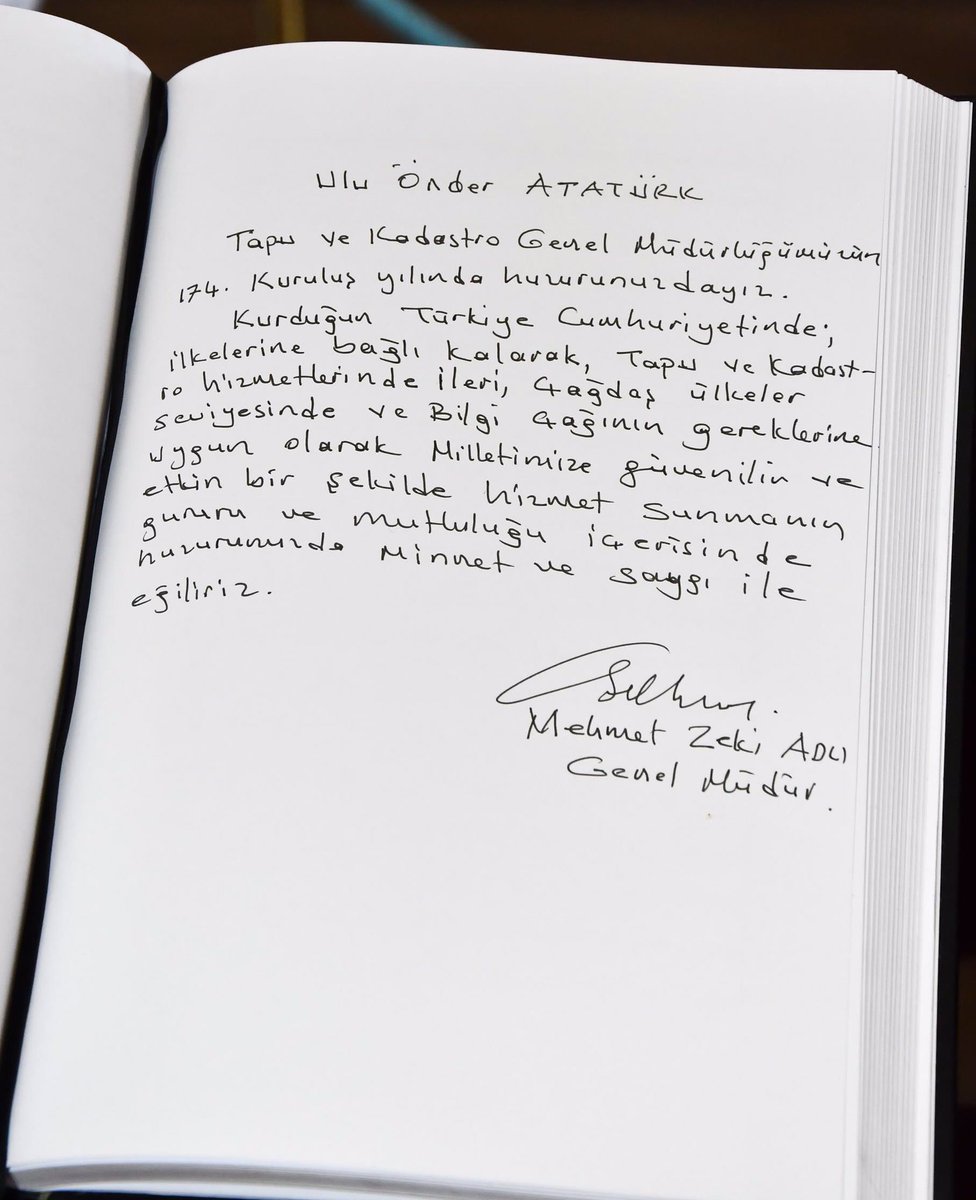 Ulu Önder ATATÜRK
Tapu ve Kadastro Genel Müdürlüğümüzün
174. Kuruluş yılında huzurunuzdayız.
Kurduğun Türkiye Cumhuriyetinde;
ilkelerine bağlı kalarak, Tapu ve Kadast-
ro hizmetlerinde ileri, çağdaş ülkeler
seviyesinde ve Bilgi çağının gereklerine
uygun olarak Milletimize güvenilin ve
etkin bir şekilde hizmet sunmanın
gururu ve mutluluğu içerisinde
huzurunuzda Minnet ve saygı ile
eğiliriz.
Mehmet Zeki ADLI
Genel Müdür.